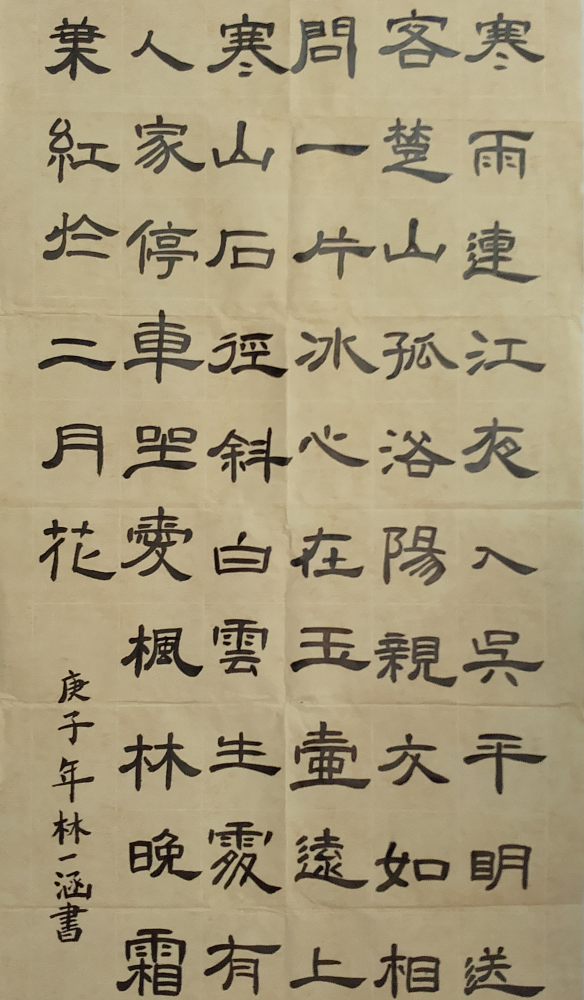 寒雨連江夜入吳平明送
客楚山孤浴陽親友如相
問一片冰心在玉壺遠上
寒山石徑斜白雲生處有
人家停車坐愛楓林晚霜
葉紅於二月花
庚子年林一涵書